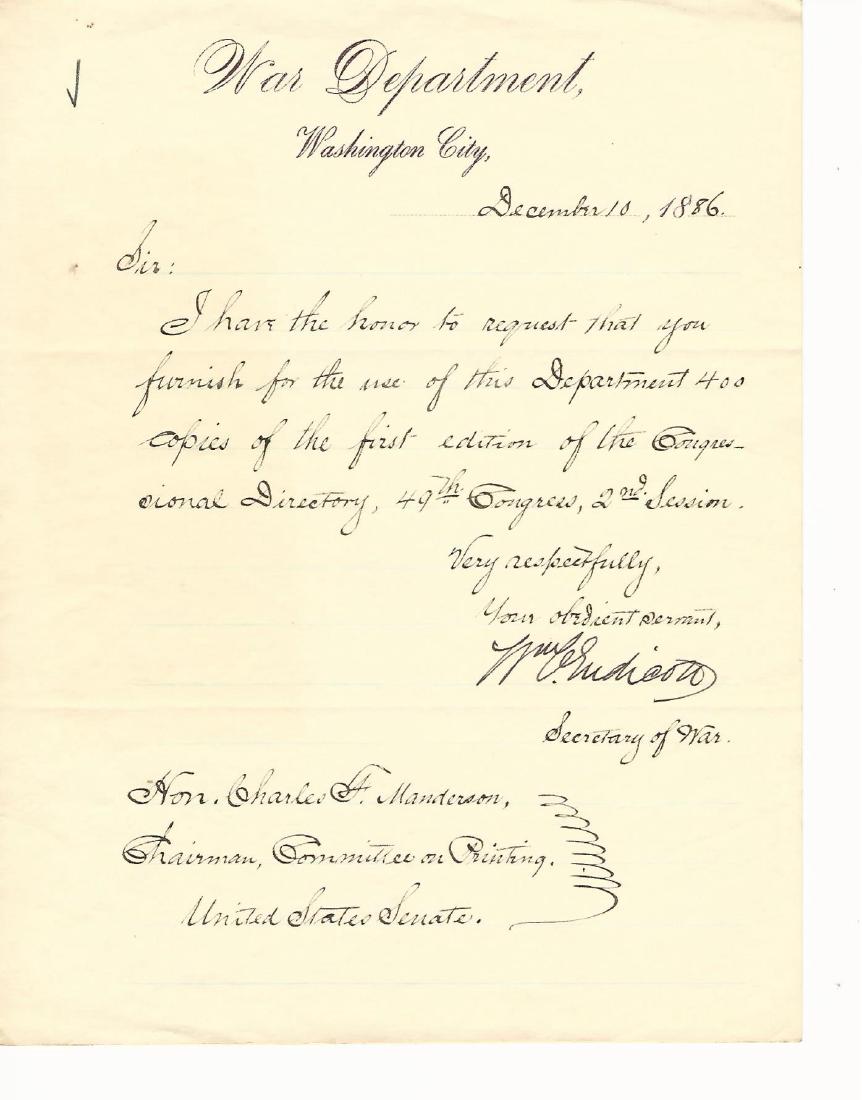 War Department,
Washington City,
December 10, 1886.
Sir:
I have the honor to request that you
furnish for the use of this Department 400
copies of the first edition of the Congres-
sional Directory, 49th Congress, 2nd Session.
Very respectfully,
Your obedient servant,
Wm C. Endicott
Secretary of War.
Hon. Charles F. Manderson,
Chairman, Committee on Printing.
United States Senate.